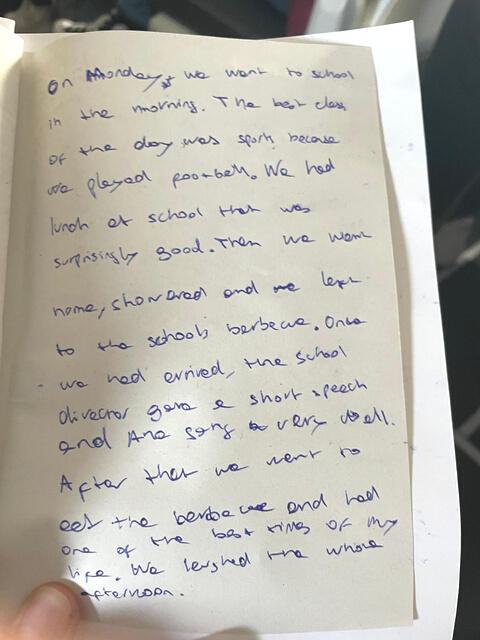 On Monday, we went to school
in the morning. The best class
of the day was sport, because
we played football. We had
lunch at school that was
surprisingly good. Then we went
home, showered and we left
to the school's barbecue. Once
we had arrived, the school
director gave a short speech
and Ana sang very well.
After that we went to
eat the barbecue and had
one of the best times of my
life. We laughed the whole
afternoon.